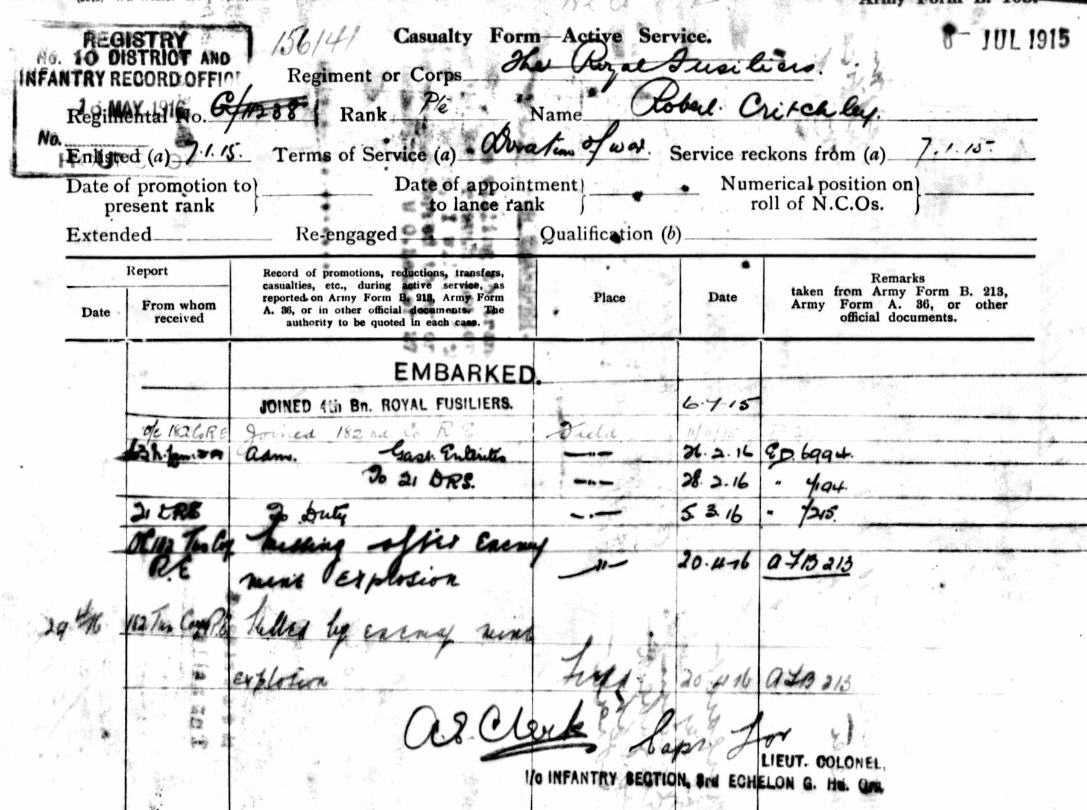 Army Form B. 103.
REGISTRY
No. 10 DISTRICT AND
INFANTRY RECORD OFFICE
MAY 1916
No.
156141
Casualty Form—Active Service.
8 - JUL 1915
Regiment or Corps The Royal Fusiliers.
Regimental No. G/11238 Rank Pte Name Robert Critchley.
Enlisted (a) 7.1.15. Terms of Service (a) Duration of war. Service reckons from (a) 7.1.15.
Date of promotion to present rank } Date of appointment to lance rank } Numerical position on roll of N.C.Os. }
Extended Re-engaged Qualification (b)
Report
Date
From whom received
Record of promotions, reductions, transfers, casualties, etc., during active service, as reported on Army Form B. 213, Army Form A. 36, or in other official documents. The authority to be quoted in each case.
Place
Date
Remarks taken from Army Form B. 213, Army Form A. 36, or other official documents.
EMBARKED.
JOINED 4th Bn. ROYAL FUSILIERS. 6-7-15
o/c 182 Co RE Joined 182nd Co R E Field
Adm. Gast. Enteritis —"— 26.2.16 ED 6994.
To 21 DRS. —"— 28.2.16 "
21 DRS To Duty —"— 5.3.16 "
OC 182 Tun Coy R.E Missing after enemy
mine explosion —"— 20.4.16 AFB 213
29/4/16 182 Tun Coy R.E Killed by enemy mine
explosion Field 20.4.16 AFB 213
A E Clerk Capt. For
LIEUT. COLONEL,
I/o INFANTRY SECTION, 3rd ECHELON G. Hd. Qrs.